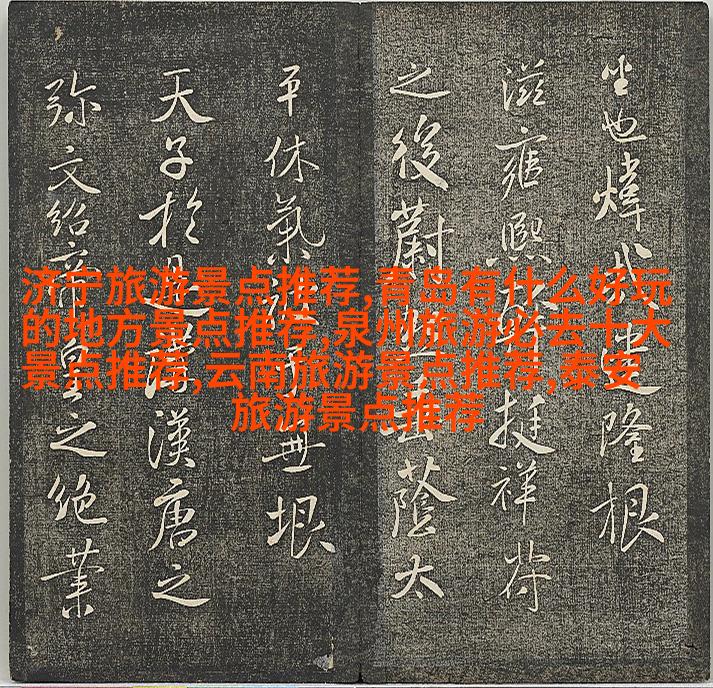 济宁旅游景点推荐,青岛有什么好玩
的地方景点推荐,泉州旅游必去十大
景点推荐,云南旅游景点推荐,泰安
旅游景点推荐
也煒隆根
滋雍熙挺祥符
之後蔚蔭太
平休氣無垠
天子於是漢唐之
弥文紹帝皇之絶業